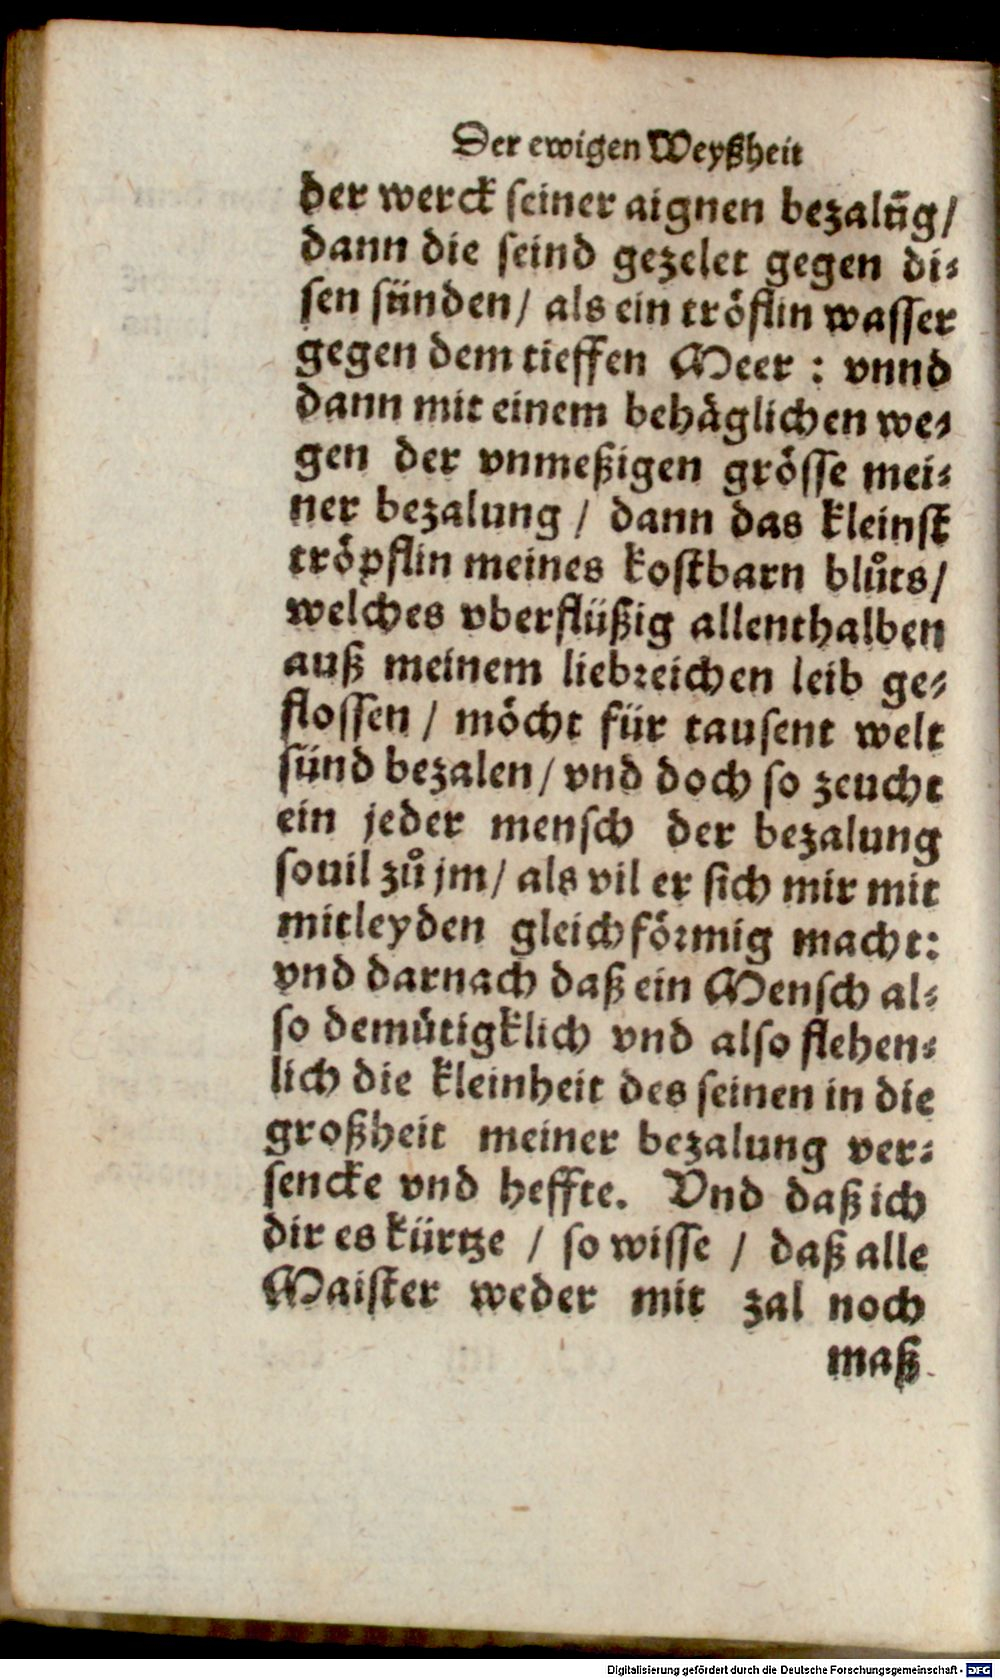 Der ewigen Weyßheit
der werck seiner aignen bezalũg/
dann die seind gezelet gegen di⸗
sen sünden/ als ein tröflin wasser
gegen dem tieffen Meer : vnnd
dann mit einem behäglichen we⸗
gen der vnmeßigen grösse mei⸗
ner bezalung / dann das kleinst
tröpflin meines kostbarn blůts/
welches vberflüßig allenthalben
auß meinem liebreichen leib ge⸗
flossen / möcht für tausent welt
sünd bezalen/ vnd doch so zeucht
ein jeder mensch der bezalung
souil zů jm/ als vil er sich mir mit
mitleyden gleichförmig macht:
vnd darnach daß ein Mensch al⸗
so demütigklich vnd also flehen⸗
lich die kleinheit des seinen in die
großheit meiner bezalung ver⸗
sencke vnd heffte. Vnd daß ich
dir es kürtze / so wisse / daß alle
Maister weder mit zal noch
maß
Digitalisierung gefördert durch die Deutsche Forschungsgemeinschaft - DFG